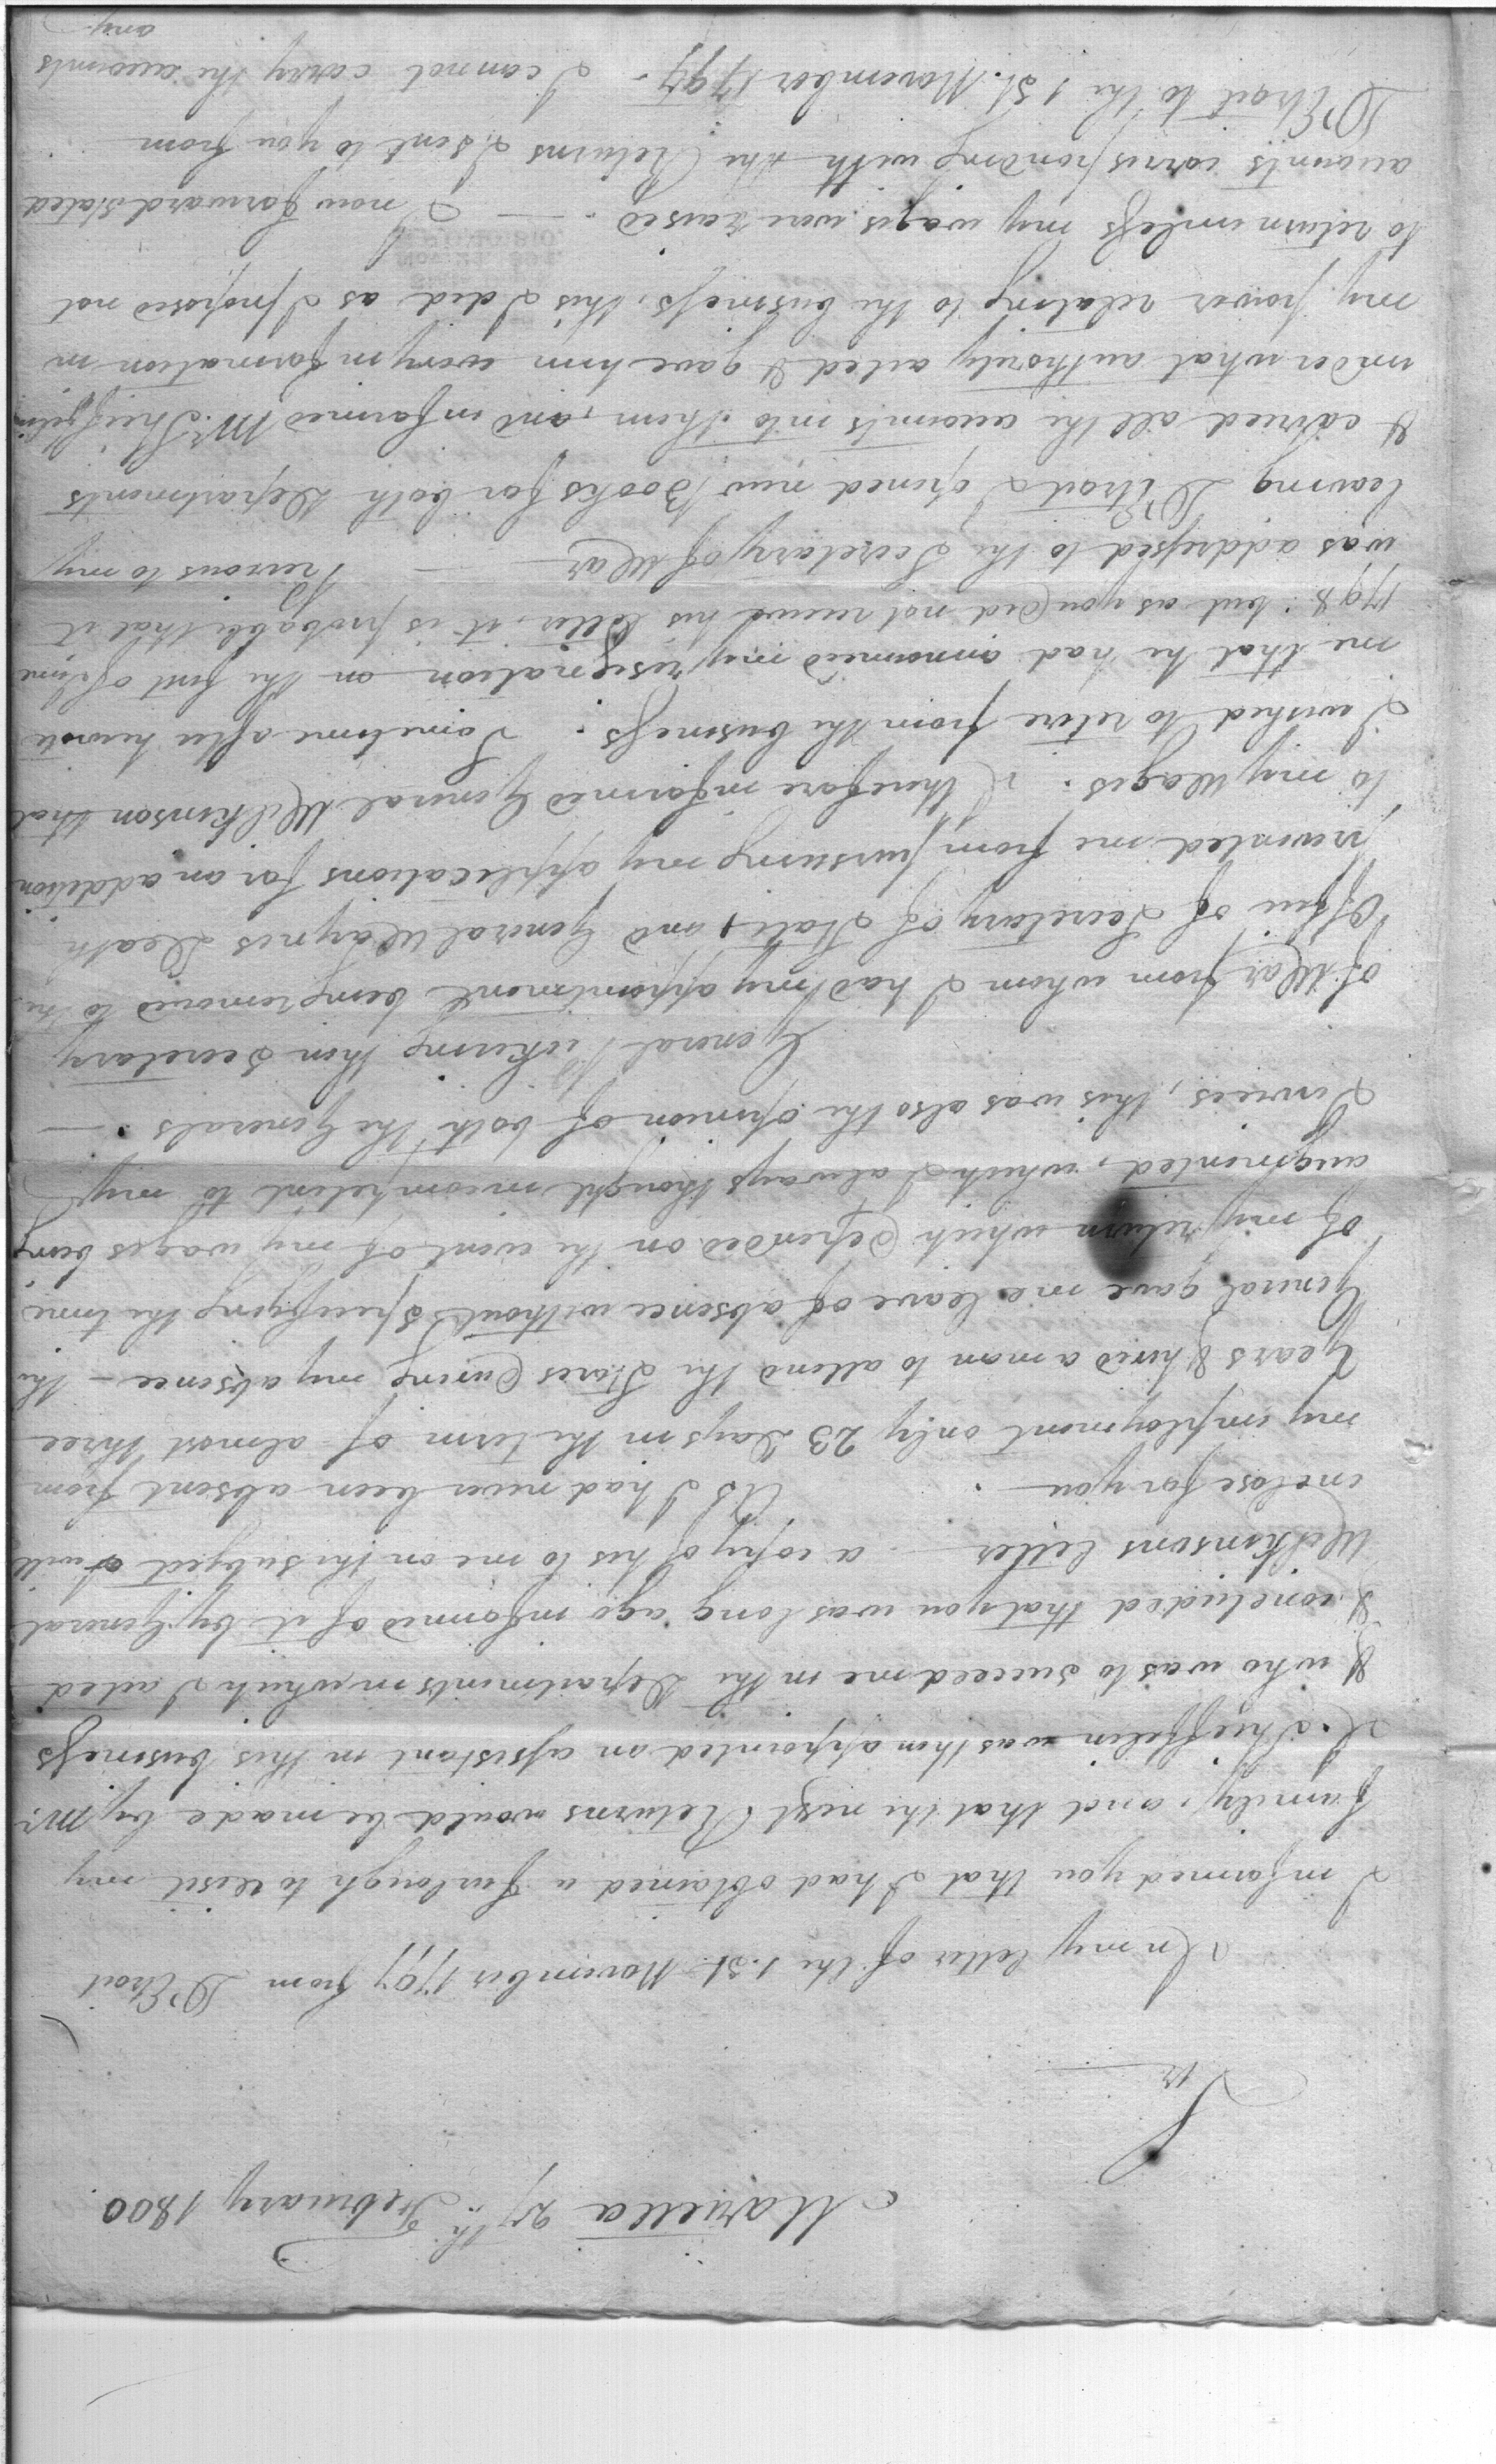 Marietta 27th February 1800
Sir
In my letter of the 1st November 1797 from D'Etroit
I informed you that I had obtained a Furlough to visit my
family, and that the next Returns would be made by Mr.
Shieffelin was then appointed an assistant in this business
& who was to succeed me in the Departments in which I acted
& concluded that you was long ago informed of it by General
Wilkinsons letter a copy of his to me on the subject I will
enclose for you
As I had never been absent from
my employment only 23 Days in the term of almost three
Years & hired a man to attend the Stores during my absence - the
General gave me leave of absence without specifying the time
of my return which depended on the event of my wages being
augmented, which I always thought incompetent to my
Services, this was also the opinion of both the Generals. —
General Pickering then Secretary
of War from whom I had my appointment being removed to the
Office of Secretary of State, and General Waynes Death
prevented me from pursuing my applications for an addition
to my Wages. I therefore informed General Wilkinson that
I wished to retire from the business. Sometime after he wrote
me that he had announced my resignation on the first of June
1798. but as you did not receive his letter, it is probable that it
was addressed to the Secretary of War — Previous to my
leaving D'Etroit I opened new Books for both Departments
& carried all the accounts into them, and informed Mr. Shieffelin
under what authority acted & gave him every information in
my power relating to the business, this I did as I proposed not
to return unless my wages were raised. — I now forward stated
accounts corresponding with the Returns I sent to you from
D'Etroit to the 1st. November 1797. I cannot carry the accounts
any